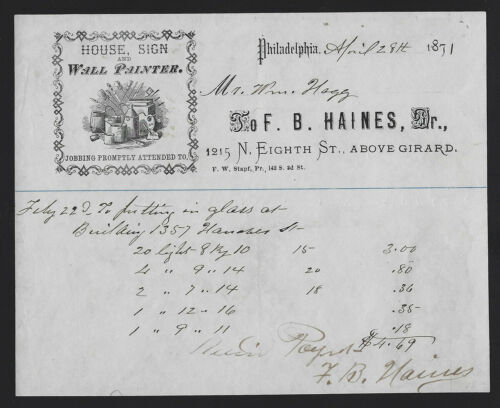 HOUSE, SIGN
AND
WALL PAINTER.
JOBBING PROMPTLY ATTENDED TO.
Philadelphia, April 28th 1871
Mr. Wm. Hogg
To F. B. HAINES, Dr.,
1215 N. EIGHTH ST., ABOVE GIRARD.
F. W. Stapf, Pr., 142 S. 2d St.
Feby 22d To putting in glass at
Building 1357 Hanover St
20 light 8 by 10 15 3.00
4 " 9 " 14 20 .80
2 " 7 " 14 18 .36
1 " 12 " 16 .35
1 " 9 " 11 .18
$4.69
F. B. Haines